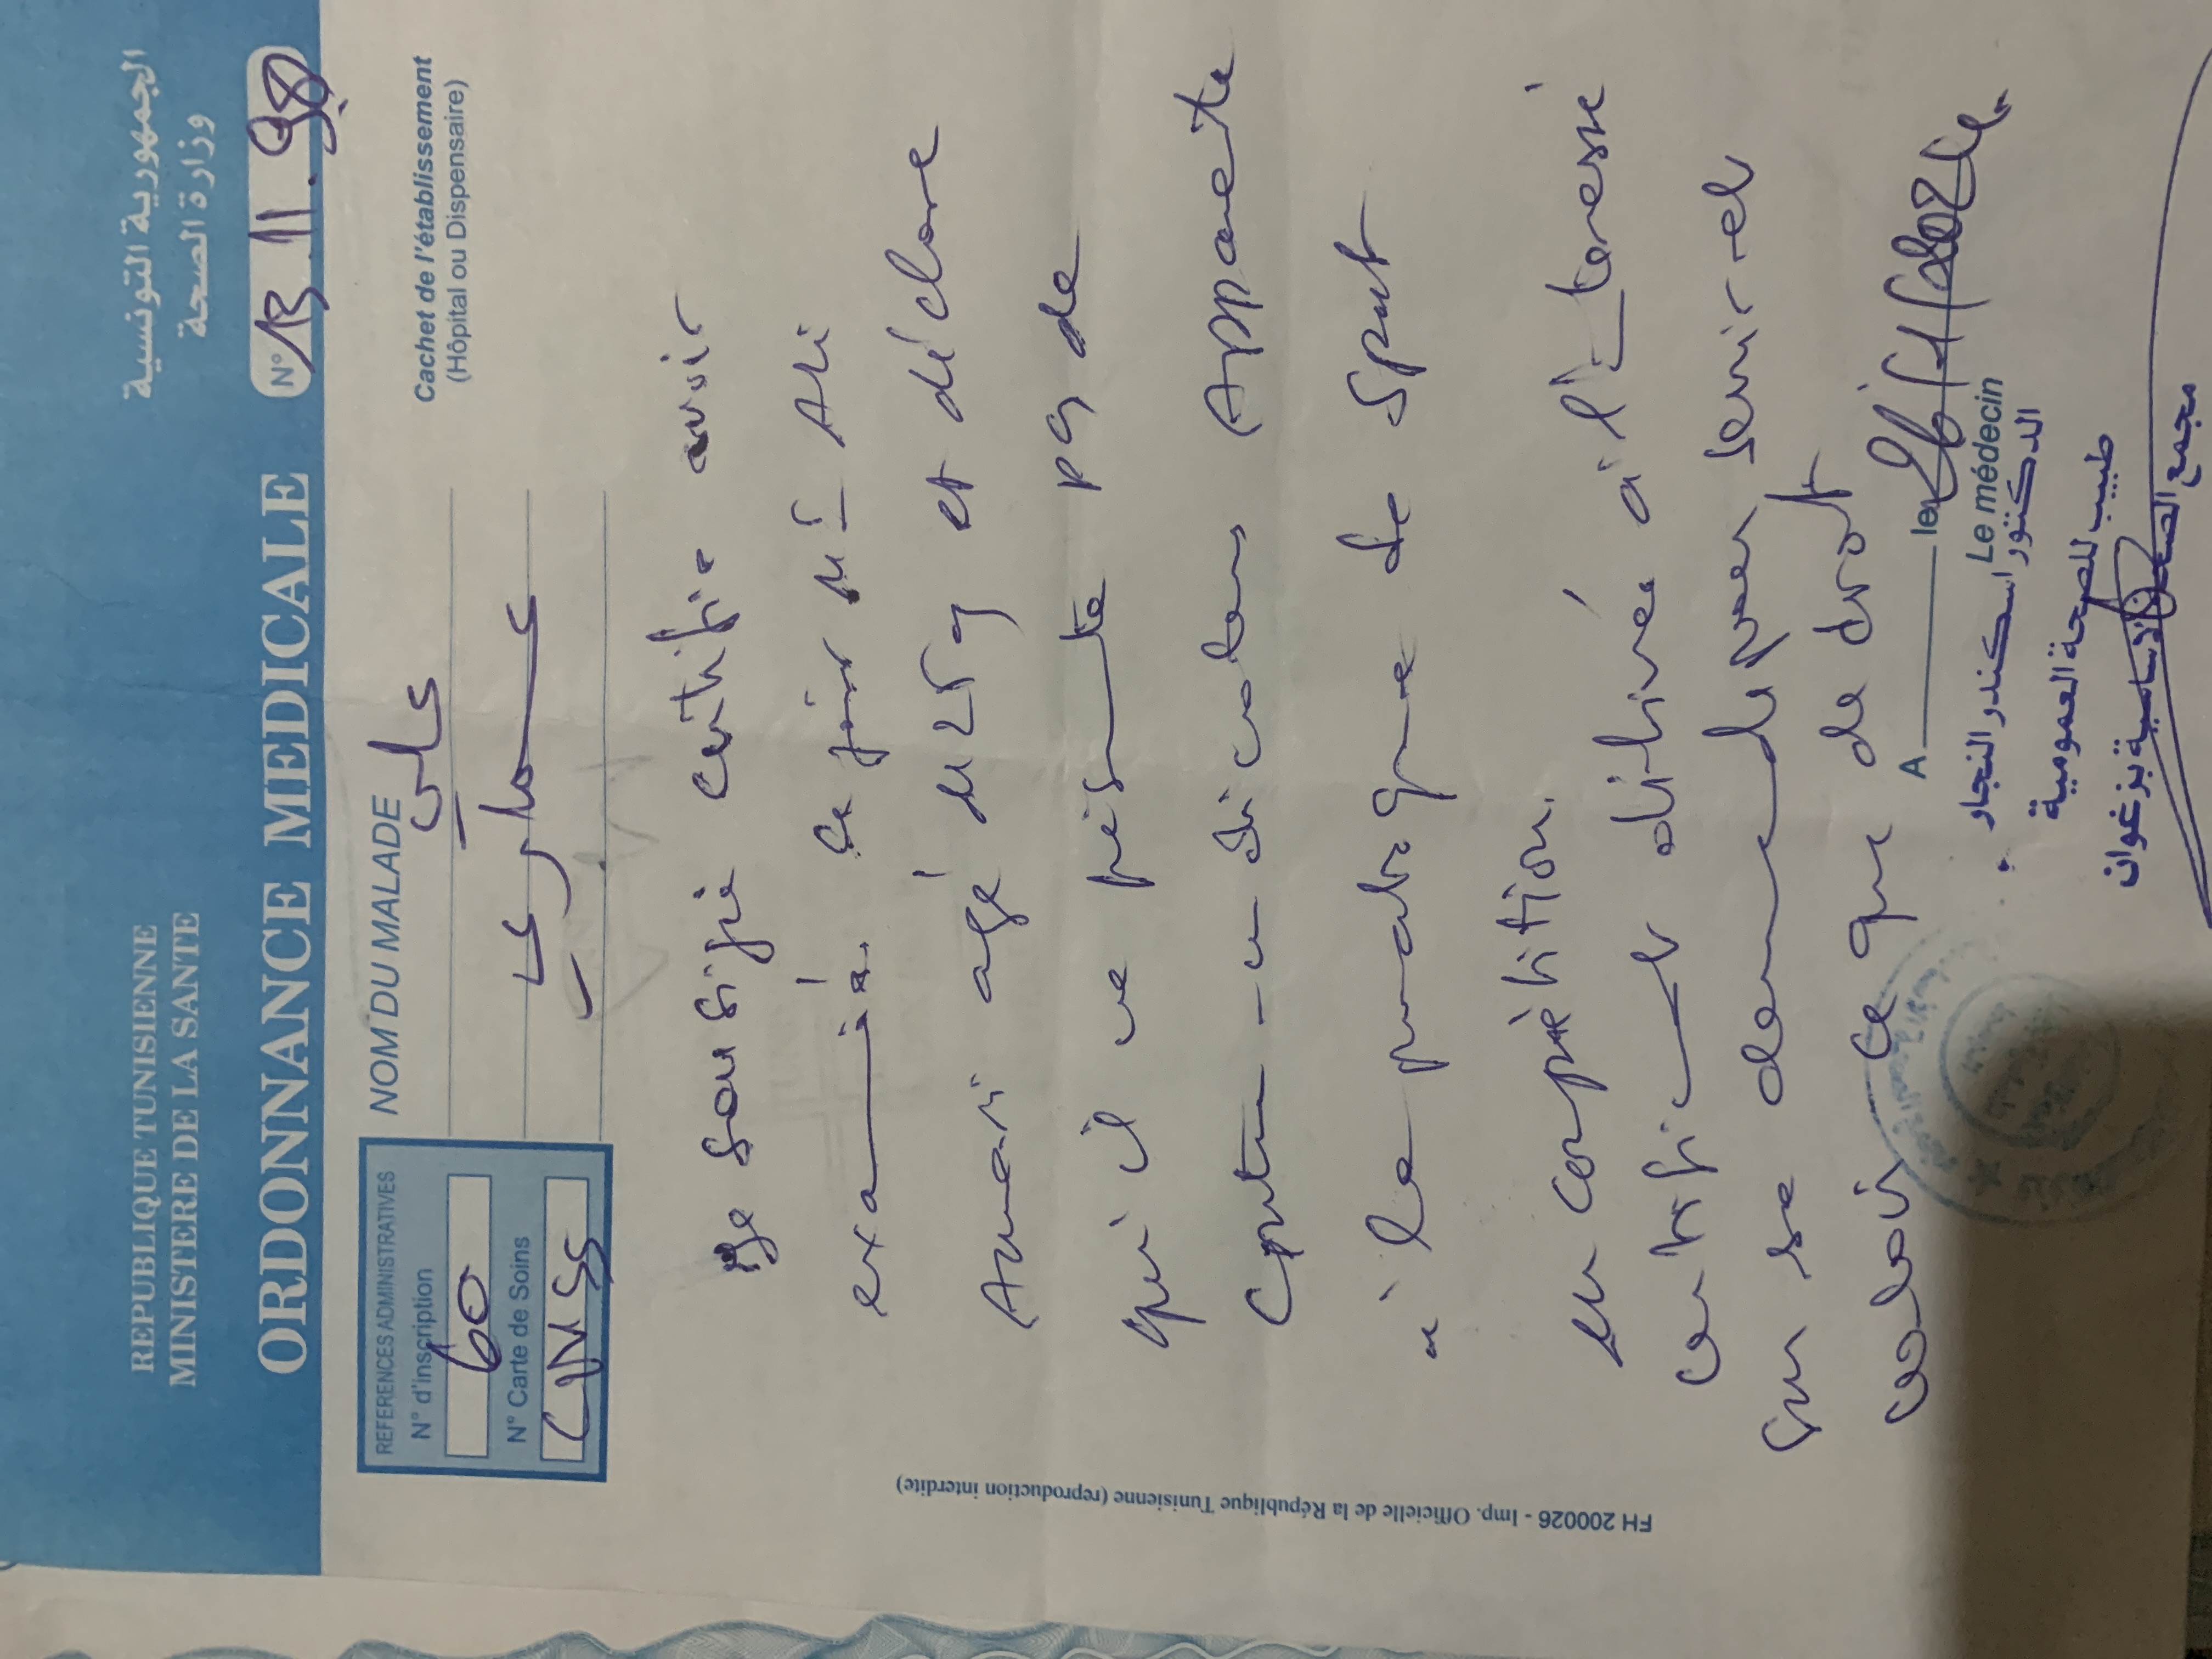 REPUBLIQUE TUNISIENNE
MINISTERE DE LA SANTE
الجمهورية التونسية
وزارة الصحة
ORDONNANCE MEDICALE
N° 13.11.98
REFERENCES ADMINISTRATIVES
N° d'inscription
60
N° Carte de Soins
CNSS
NOM DU MALADE
علي
Cachet de l'établissement
(Hôpital ou Dispensaire)
Je sousigné certifie avoir
examiné ce jour Mr Ali
agé de 25 et déclare
qui il ne présente pas de
contre-indications Apparente
à la pratique de Sport
en compétition.
certificat délivré à l'interessé
sur sa demande pour servir et
valoir ce que de droit
A le
Le médecin
الدكتور اسكندر النجار
طبيب للصحة العمومية
مجمع الصحة الاساسية بزغوان
FH 200026 - Imp. Officielle de la République Tunisienne (reproduction interdite)